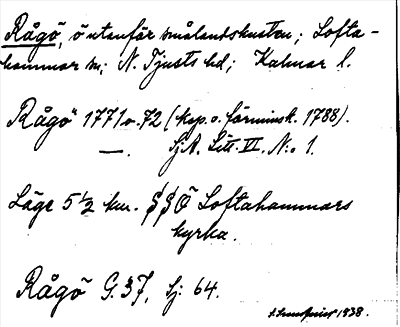 Rågö, ö utanför smålandskusten; Lofta-
hammar sn; N. Tjusts hd; Kalmar l.
Rågö 1771 o. 72 (kop. o. förminsk. 1788).
—. Sj.A. Litt. VI. N:o 1.
Läge 5 1/2 km. SSÖ Loftahammars
kyrka.
Rågö G. 37, Sj: 64.
1938.